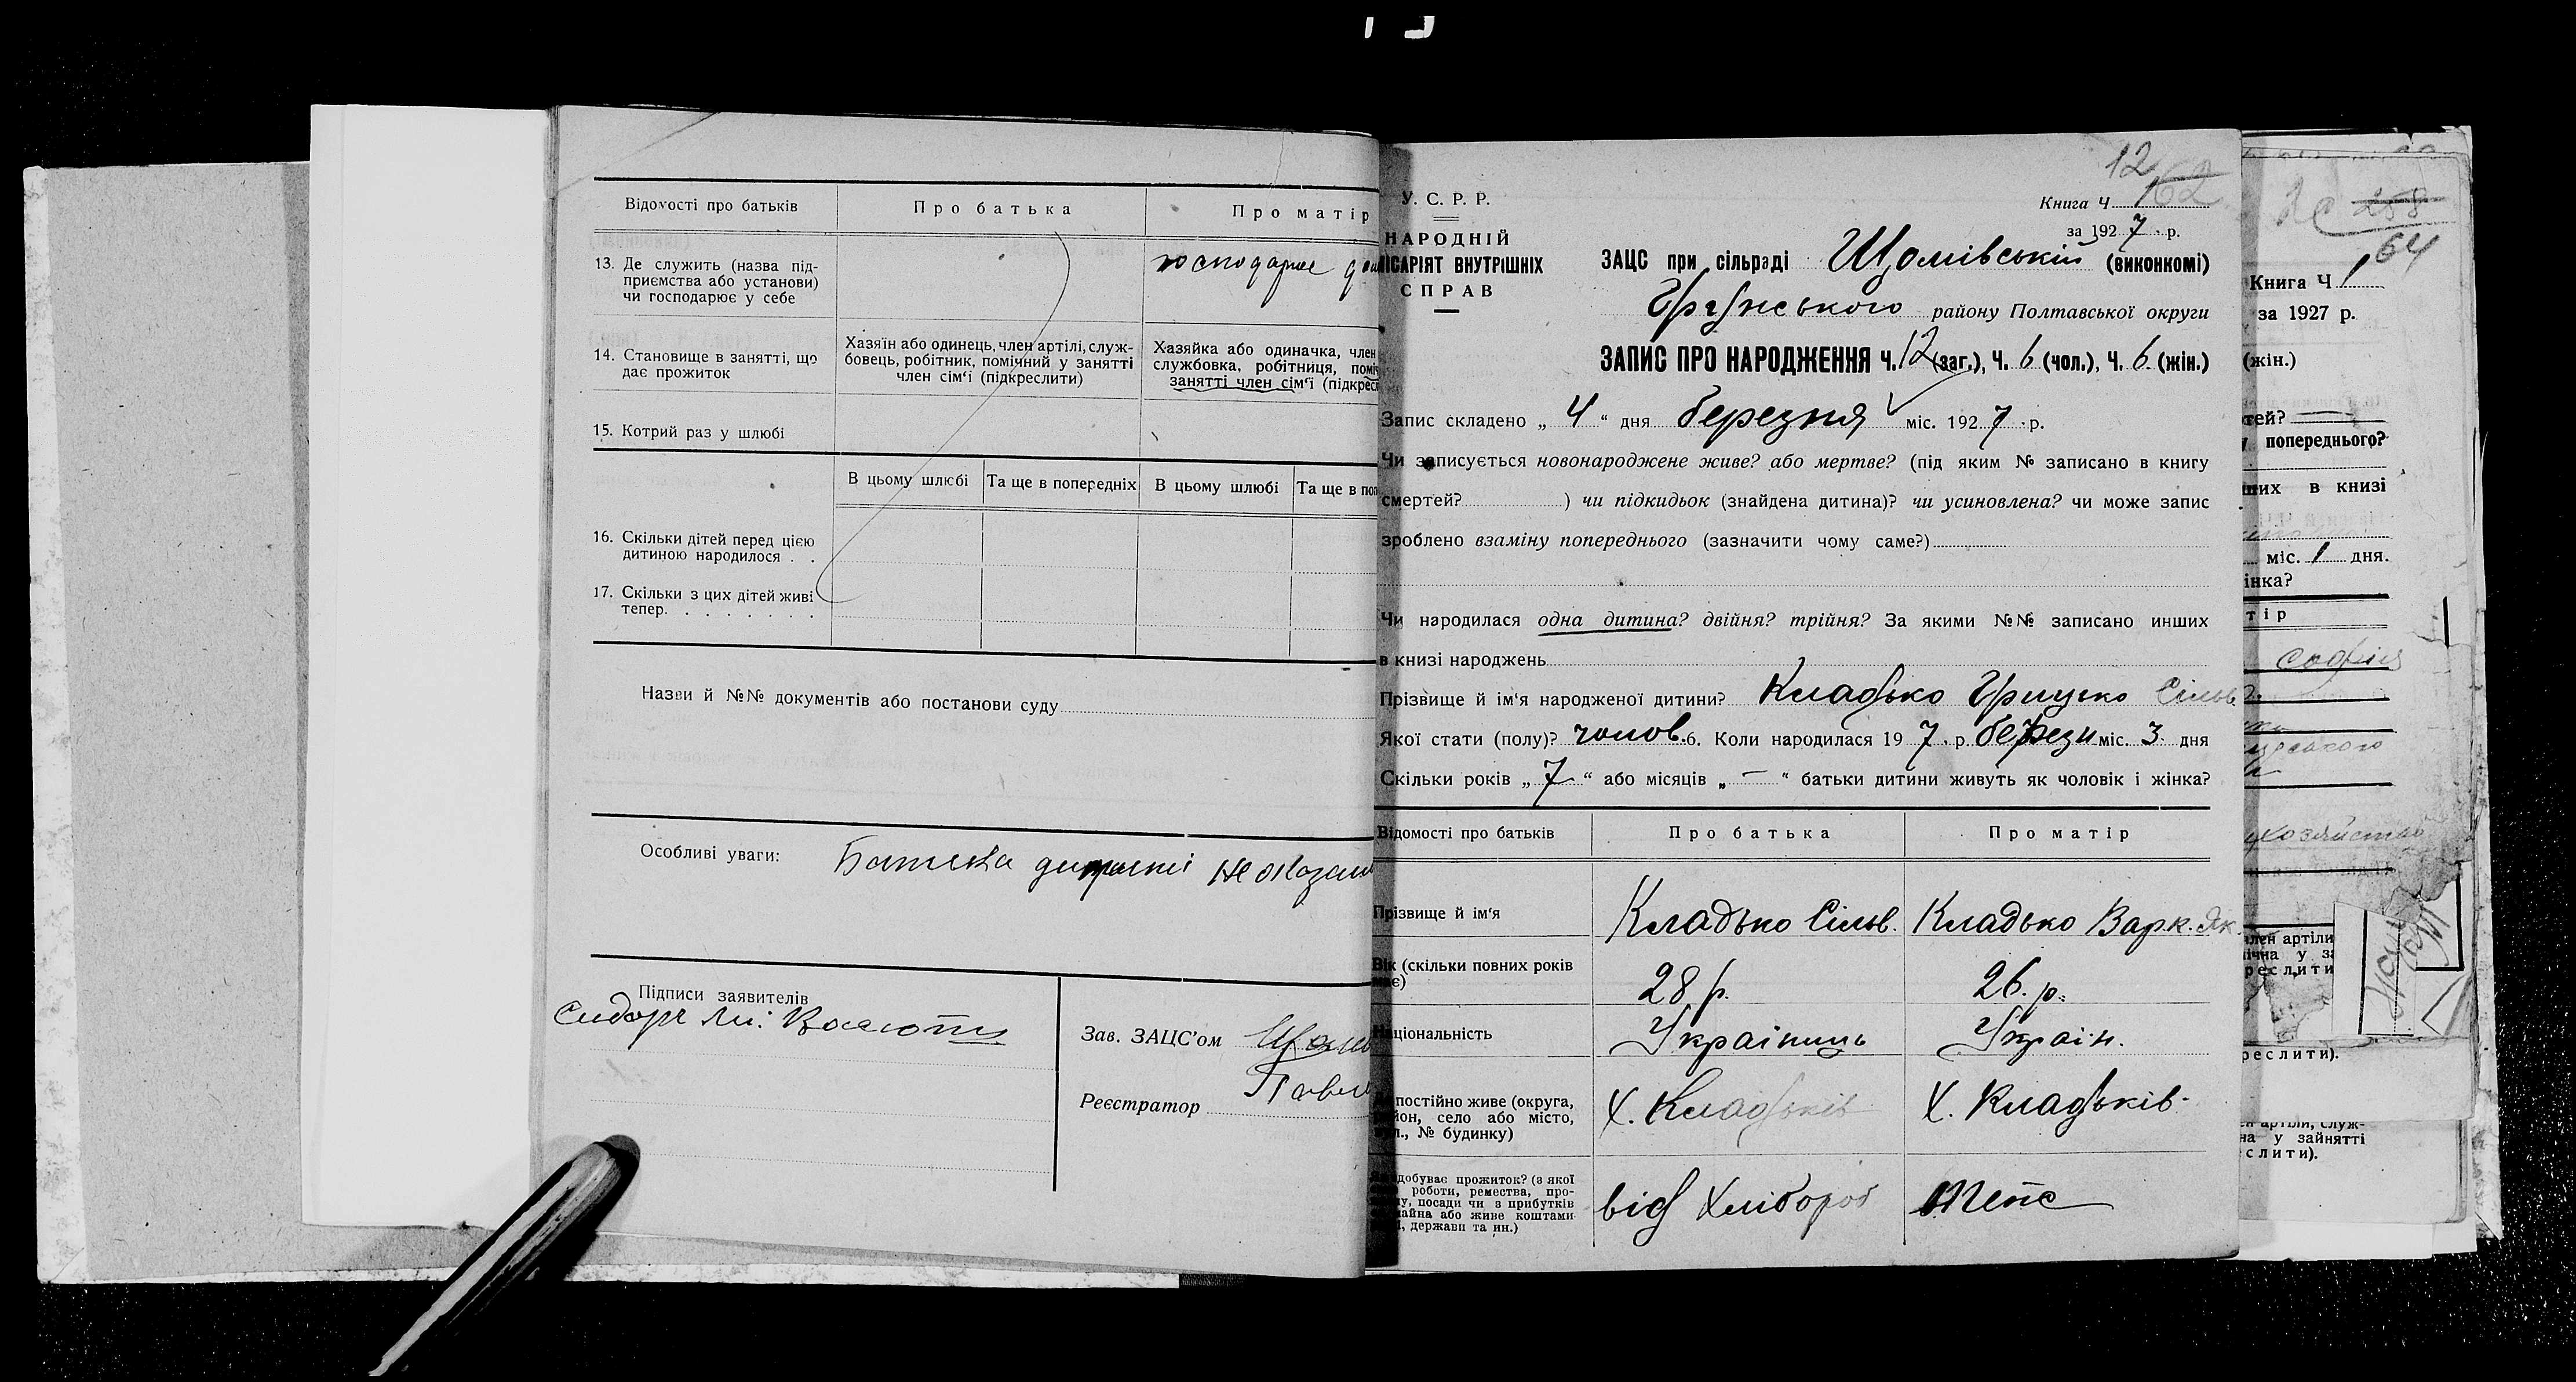 Відомості про батьків
Про батька
Про матір
13. Де служить (назва під-
приємства або установи)
чи господарює у себе
господарює
14. Становище в занятті, що
дає прожиток
Хазяїн або одинець, член артілі, служ-
бовець, робітник, помічний у занятті
член сім'ї (підкреслити)
Хазяйка або одиначка, член
службовка, робітниця, поміч
занятті член сім'ї (підкресл
15. Котрий раз у шлюбі
В цьому шлюбі
Та ще в попередніх
В цьому шлюбі
Та ще в поп
16. Скільки дітей перед цією
дитиною народилося . .
17. Скільки з цих дітей живі
тепер. . . . . . .
Назви й №№ документів або постанови суду
Особливі уваги:
Батька дитини не
Підписи заявителів
Зав. ЗАЦС'ом
Реєстратор
12
162
У. С. Р. Р.
НАРОДНІЙ
ІСАРІЯТ ВНУТРІШНІХ
СПРАВ
Книга Ч.
за 1927 . р.
ЗАЦС при сільраді Щомівській (виконкомі)
району Полтавської округи
ЗАПИС ПРО НАРОДЖЕННЯ Ч. 12 (заг.), Ч. 6 (чол.), Ч. 6. (жін.)
Запис складено „ 4 “ дня березня міс. 1927 . р.
Чи записується новонароджене живе? або мертве? (під яким № записано в книгу
смертей? ) чи підкидьок (знайдена дитина)? чи усиновлена? чи може запис
зроблено взаміну попереднього (зазначити чому саме?)
Чи народилася одна дитина? двійня? трійня? За якими №№ записано инших
в книзі народжень
Прізвище й ім'я народженої дитини? Кладько Грицько Сільв.
Якої стати (полу)? чолов. 6. Коли народилася 19 7 . р. березн міс. 3 дня
Скільки років „ 7 “ або місяців „ — “ батьки дитини живуть як чоловік і жінка?
Відомості про батьків
Про батька
Про матір
Прізвище й ім'я
Кладько Сільв.
Кладько Варк. Як.
Вік (скільки повних років
має)
28 р.
26. р.
Національність
Українець
Україн.
постійно живе (округа,
йон, село або місто,
л., № будинку)
Х. Кладьків
Х. Кладьків
добуває прожиток? (з якої
роботи, ремества, про-
у, посади чи з прибутків
майна або живе коштами
, держави та ин.)
від хлібороб
теж
258
64
Книга Ч 1
за 1927 р.
(жін.)
тей?
попереднього?
ших в книзі
міс. 1 дня.
інка?
тір
Софія
лен артіли
ічна у за
реслити
реслити).
ен артіли, служ-
на у зайнятті
слити).